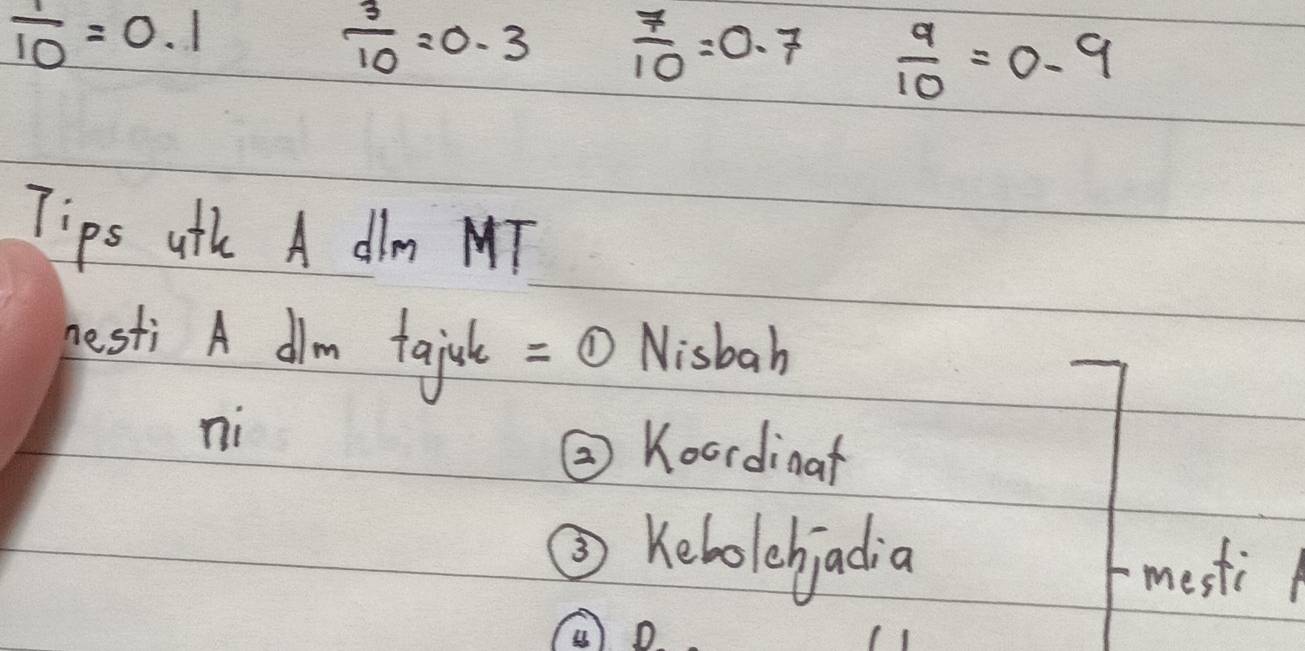 1/10 = 0.1 3/10 = 0.3 7/10 = 0.7 9/10 = 0.9
Tips utk A dlm MT
mesti A dlm tajuk = ① Nisbah
ni ② Koordinat
③ Kebolehjadia
mesti A
④